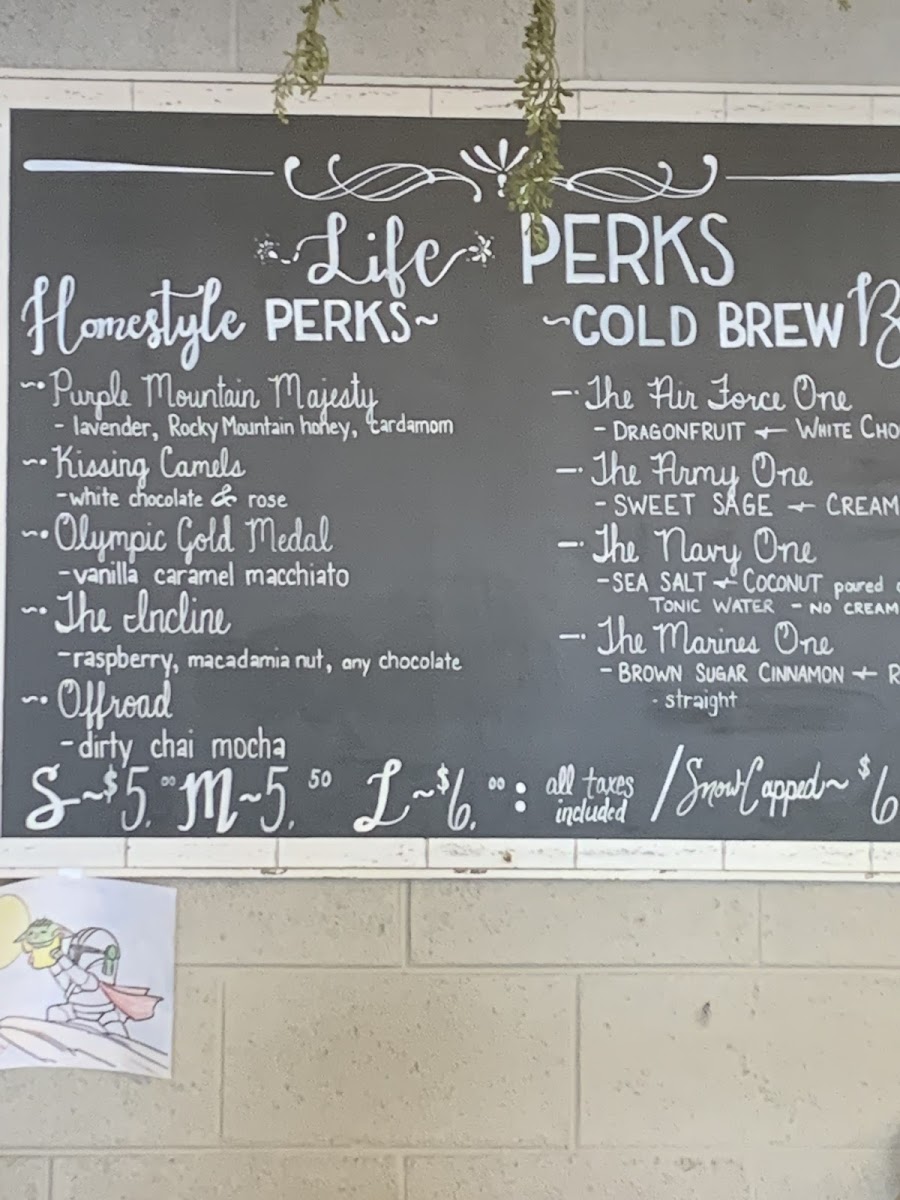 Life PERKS
Homestyle PERKS~
~• Purple Mountain Majesty
- lavender, Rocky Mountain honey, cardamom
~• Kissing Camels
-white chocolate & rose
~• Olympic Gold Medal
-vanilla caramel macchiato
~• The Incline
-raspberry, macadamia nut, any chocolate
~• Offroad
-dirty chai mocha
~COLD BREW
—• The Air Force One
- DRAGONFRUIT + WHITE CHO
—• The Army One
- SWEET SAGE + CREAM
—• The Navy One
-SEA SALT + COCONUT poured
TONIC WATER - NO CREAM
—• The Marines One
- BROWN SUGAR CINNAMON + R
- straight
S~$5.00 M~5.50 L~$6.00: all taxes included / SnowCapped~ $6